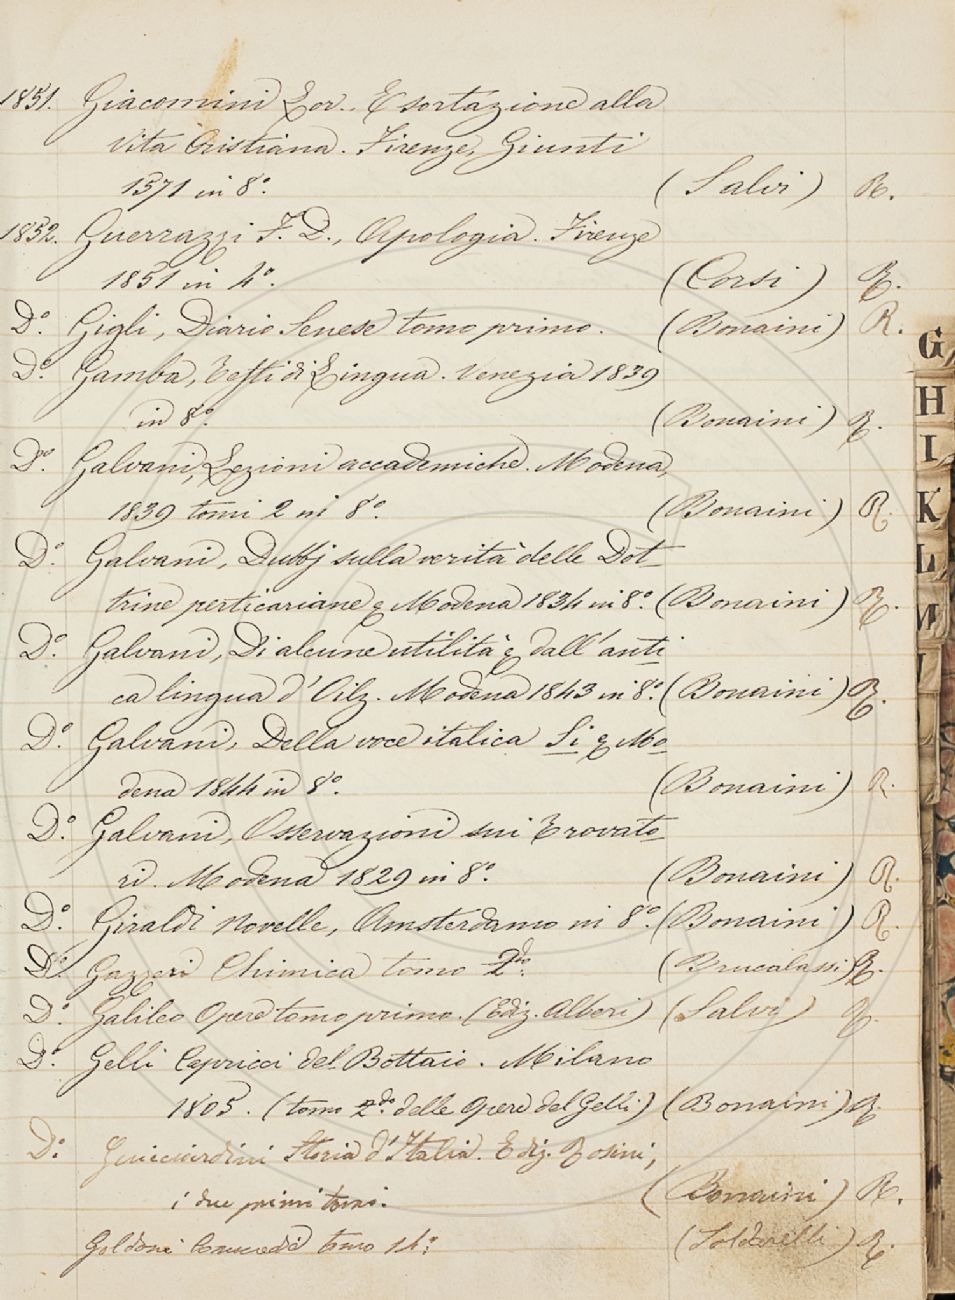 1851. Giacomini Lor. Esortazione alla
Vita Cristiana. Firenze, Giunti
1571 in 8.° (Salvi) R.
1852. Guerrazzi F. D., Apologia. Firenze
1851 in 4.° (Corsi) R.
D.° Gigli, Diario Senese tomo primo. (Bonaini) R.
D.° Gamba, Testi di Lingua. Venezia 1839
in 8.° (Bonaini) R.
D.° Galvani, Lezioni accademiche. Modena,
1839 tomi 2 in 8.° (Bonaini) R.
D.° Galvani, Dubbj sulla verità delle Dot-
trine perticariane & Modena 1834 in 8.° (Bonaini) R.
D.° Galvani, Di alcune utilità & dall'anti
ca lingua d'Oilz. Modena 1843 in 8.° (Bonaini) R.
D.° Galvani, Della voce italica Si & Mo-
dena 1844 in 8.° (Bonaini) R.
D.° Galvani, Osservazioni sui Trovato-
ri. Modena 1829 in 8.° (Bonaini) R.
D.° Giraldi Novelle, Amsterdamo in 8.° (Bonaini) R.
D.° Gazzeri Chimica tomo 2.do (Brucalassi) R.
D.° Galileo Opere tomo primo. (Ediz. Alberi) (Salvi) R.
D.° Gelli Capricci del Bottaio. Milano
1805. (tomo 2.do delle Opere del Gelli) (Bonaini) R
D.° Guicciardini Storia d'Italia. Ediz. Rosini,
i due primi tomi. (Bonaini) R.
Goldoni Commedie tomo 14.° (Soldarelli) R.
G
H
I
K
L
M